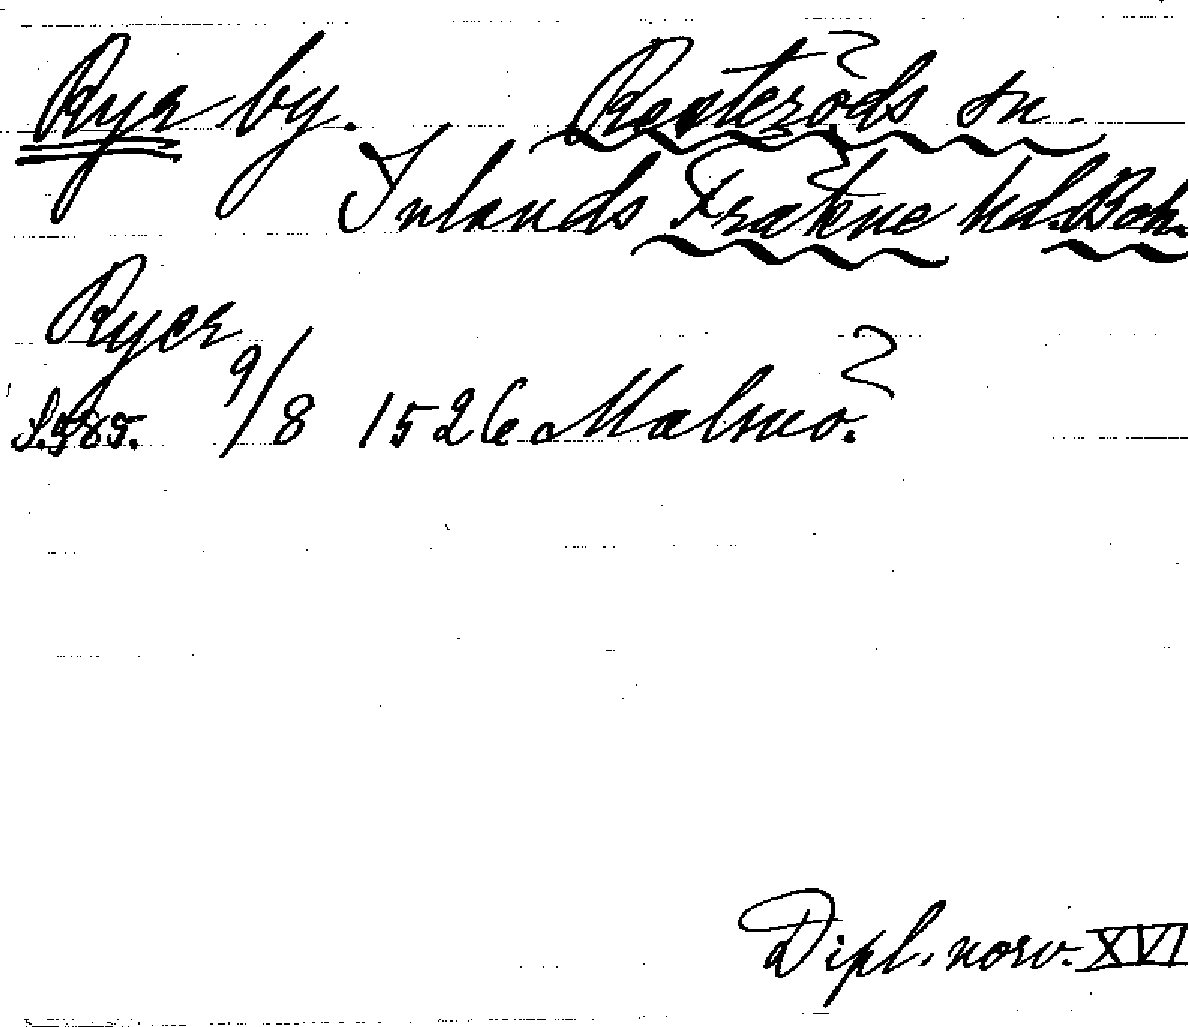 Ryr by. Resteröds sn.
Inlands Fräkne hd. Boh.
Ryer
S. 585. 9/8 1526 Malmö.
Dipl. norv. XVI